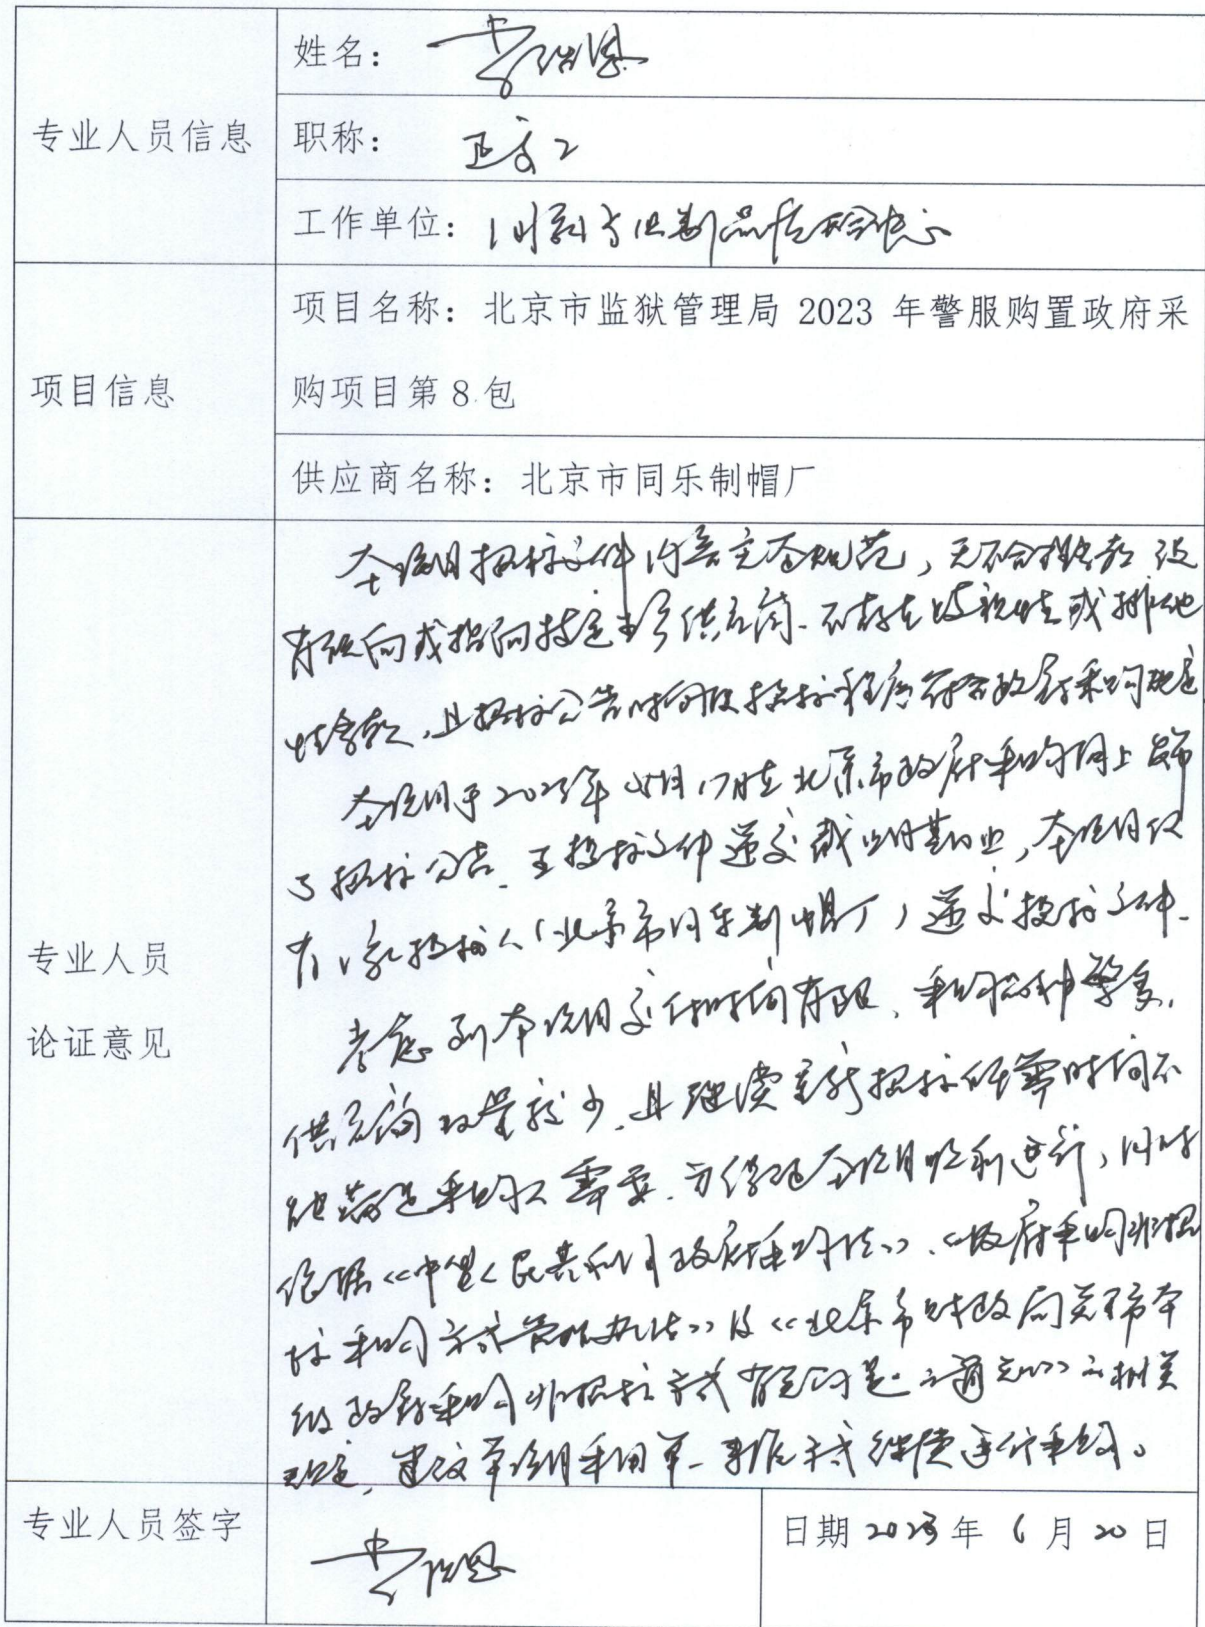 专业人员信息
姓名：
职称：正高工
工作单位：
项目信息
项目名称：北京市监狱管理局 2023 年警服购置政府采
购项目第 8 包
供应商名称：北京市同乐制帽厂
专业人员
论证意见
本项目招标文件内容完整规范，无不合理条款 没
有倾向或指向特定 供应商、不存在歧视性或排他
性条款，且招标公告时间及招标程序符合政府采购规定
本项目于2023年 5月17日在北京市政府采购网上发布
了招标公告、至投标文件递交截止日期止，本项目仅
有1家投标人（北京市同乐制帽厂）递交投标文件、
考虑到本项目交付时间有限、采购品种繁多，
供应商数量较少、且继续重新招标 时间不
能满足采购人需要、为保证本项目顺利进行，同时
依据《中华人民共和国政府采购法》、《政府采购非招
标采购方式管理办法》及《北京市财政局关于市本
级政府采购非招标方式有关问题的通知》的相关
规定，建议本项目采用单一来源方式继续进行采购。
专业人员签字
日期 2023 年 6 月 20 日